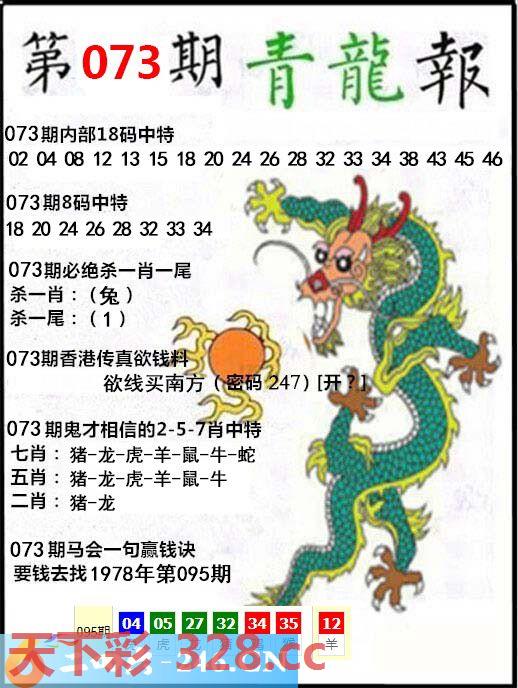 第073期青龍報
073期内部18码中特
02 04 08 12 13 15 18 20 24 26 28 32 33 34 38 43 45 46
073期8码中特
18 20 24 26 28 32 33 34
073期必绝杀一肖一尾
杀一肖：（兔）
杀一尾：（1）
073期香港传真欲钱料
欲线买南方（密码 247）[开？]
073期鬼才相信的2-5-7肖中特
七肖：猪-龙-虎-羊-鼠-牛-蛇
五肖：猪-龙-虎-羊-鼠-牛
二肖：猪-龙
073期马会一句赢钱诀
要钱去找1978年第095期
095期 04 05 27 32 34 35 12
虎 羊
天下彩-328.cc